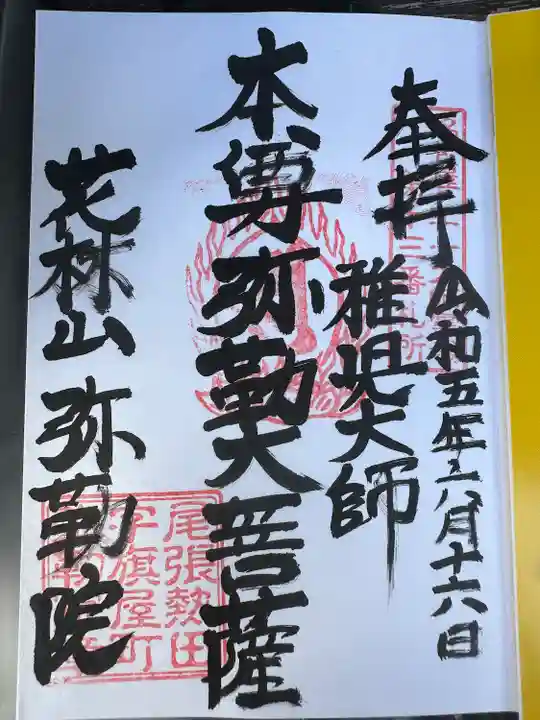 奉拝
令和五年六月十六日
雅児大師
本尊弥勒大菩薩
花林山弥勒院
尾張熱田
字旗屋町